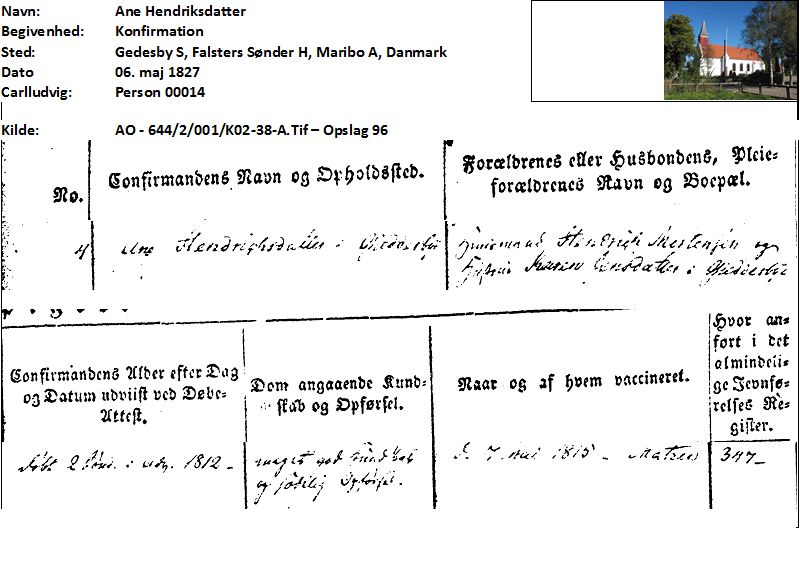 Navn: Ane Hendriksdatter
Begivenhed: Konfirmation
Sted: Gedesby S, Falsters Sønder H, Maribo A, Danmark
Dato 06. maj 1827
Carlludvig: Person 00014
Kilde: AO - 644/2/001/K02-38-A.Tif – Opslag 96
No.
Confirmandens Navn og Opholdssted.
Forældrenes eller Husbondens, Pleie-
forældrenes Navn og Boepæl.
4
Ane Hendrighsdatter i Giedesbye
Huusmand Hendrich Mortensen og
Hustrue Karen i Giedesbye
Confirmandens Alder efter Dag
og Datum udviist ved Døbe-
Attest.
Dom angaaende Kund-
skab og Opførsel.
Naar og af hvem vaccineret.
Hvor an-
ført i det
almindeli-
ge Jevnfø-
relses Re-
gister.
2 i 1812 –
meget god Kundskab
og Opførsel.
d. 7 Mai 1815 –
347 –